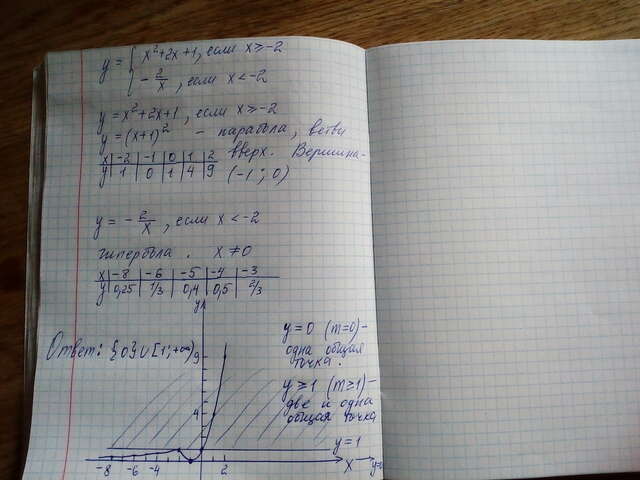 y = { x²+2x+1, если x ≥ -2
- 2/x, если x < -2
y = x²+2x+1, если x ≥ -2
y = (x+1)² - парабола, ветви
вверх. Вершина-
(-1; 0)
x | -2 | -1 | 0 | 1 | 2
y | 1 | 0 | 1 | 4 | 9
y = - 2/x, если x < -2
гипербола. x ≠ 0
x | -8 | -6 | -5 | -4 | -3
y | 0,25 | 1/3 | 0,4 | 0,5 | 2/3
Ответ: {0}∪[1;+∞)
y
9
4
y=0 (m=0)-
одна общая
точка.
y≥1 (m≥1)-
две и одна
общая точка
y=1
-8 -6 -4 2 x